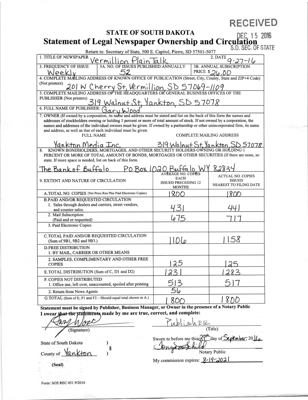 RECEIVED
DEC 15 2016
S.D. SEC. OF STATE
STATE OF SOUTH DAKOTA
Statement of Legal Newspaper Ownership and Circulation
Return to: Secretary of State, 500 E. Capitol, Pierre, SD 57501-5077
1. TITLE OF NEWSPAPER Vermillion Plain Talk
2. DATE 9-27-16
3. FREQUENCY OF ISSUE Weekly
3A. NO. OF ISSUES PUBLISHED ANNUALLY 52
3B. ANNUAL SUBSCRIPTION PRICE $ 26.00
4. COMPLETE MAILING ADDRESS OF KNOWN OFFICE OF PUBLICATION (Street, City, County, State and ZIP+4 Code) (Not printers)
201 W Cherry St, Vermillion SD 57069-1109
5. COMPLETE MAILING ADDRESS OF THE HEADQUARTERS OF GENERAL BUSINESS OFFICES OF THE PUBLISHER (Not printers)
319 Walnut St, Yankton, SD 57078
6. FULL NAME OF PUBLISHER Gary Wood
7. OWNER (If owned by a corporation, its name and address must be stated and list on the back of this form the names and addresses of stockholders owning or holding 1 percent or more of total amount of stock. If not owned by a corporation, the names and addresses of the individual owners must be given. If owned by a partnership or other unincorporated firm, its name and address, as well as that of each individual must be given.
FULL NAME
COMPLETE MAILING ADDRESS
Yankton Media Inc.
319 Walnut St, Yankton, SD 57078
8. KNOWN BONDHOLDERS, MORTGAGES, AND OTHER SECURITY HOLDERS OWNING OR HOLDING 1 PERCENT OR MORE OF TOTAL AMOUNT OF BONDS, MORTGAGES OR OTHER SECURITIES (If there are none, so state. If more space is needed, list on back of this form.
The Bank of Buffalo PO Box 1020 Buffalo WY 82834
9. EXTENT AND NATURE OF CIRCULATION
AVERAGE NO. COPIES EACH ISSUE DURING PRECEDING 12 MONTHS
ACTUAL NO. COPIES ISSUED NEAREST TO FILING DATE
A. TOTAL NO. COPIES (Net Press Run Plus Paid Electronic Copies) 1800 1800
B. PAID AND/OR REQUESTED CIRCULATION
1. Sales through dealers and carriers, street vendors, and counter sales. 431 441
2. Mail Subscription (Paid and or requested) 675 717
3. Paid Electronic Copies
C. TOTAL PAID AND/OR REQUESTED CIRCULATION (Sum of 9B1, 9B2 and 9B3.) 1106 1158
D. FREE DISTRIBUTION
1. BY MAIL, CARRIER OR OTHER MEANS
2. SAMPLES, COMPLIMENTARY AND OTHER FREE COPIES 125 125
E. TOTAL DISTRIBUTION (Sum of C, D1 and D2) 1231 1283
F. COPIES NOT DISTRIBUTED
1. Office use, left over, unaccounted, spoiled after printing 513 517
2. Return from News Agents 56
G. TOTAL (Sum of E, F1 and F2 - Should equal total shown in A.) 1800 1800
Statement must be signed by Publisher, Business Manager, or Owner in the presence of a Notary Public
I swear that the statements made by me are true, correct, and complete:
Gary Wood
(Signature)
Publisher
(Title)
State of South Dakota )
Sworn to before me this 27 day of September 2016
County of Yankton )
Notary Public
(Seal)
My commission expires: 8-19-2021